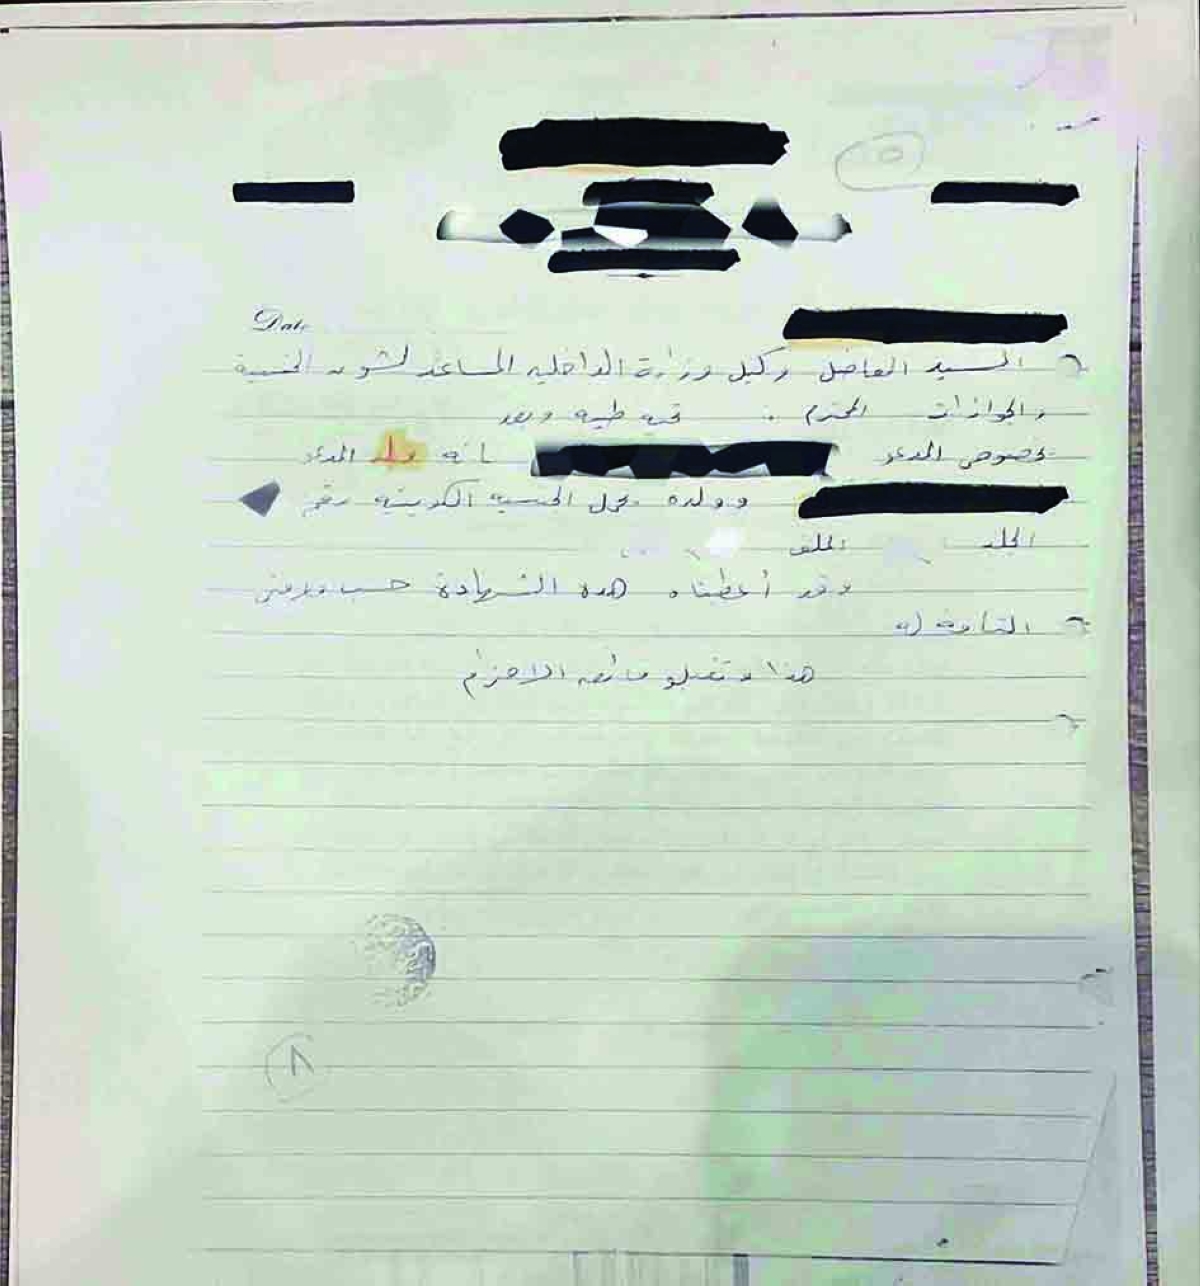 Date
السيد الفاضل وكيل وزارة الداخليه المساعد لشئون الجنسية
والجوازات المحترم : تحيه طيبه وبعد
بخصوص المدعو بانه ولد المدعو
وولده يحمل الجنسيه الكويتيه رقم
الجلد الملف
وقد أعطيناه هذه الشهادة حسب
هذا وتفضلو فائق الاحترام
٨